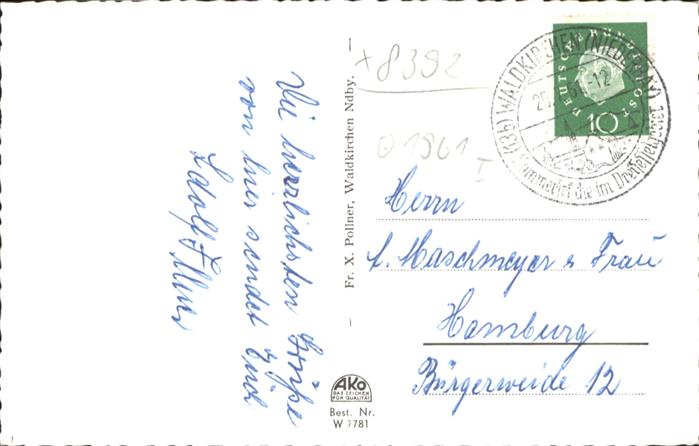 Die herzlichsten Grüße
von hier sendet Euch
Adolf
+8392
1961
I
Fr. X. Pollner, Waldkirchen Ndby.
(13b) WALDKIRCHEN (NIEDERBAY)
12
Sommerfrische im Dreisesselgebiet
DEUTSCHE BUNDESPOST
10
Herrn
H. Maschmeyer & Frau
Hamburg
Bürgerweide 12
AKO
DAS ZEICHEN
FÜR QUALITÄT
Best. Nr.
W 7781